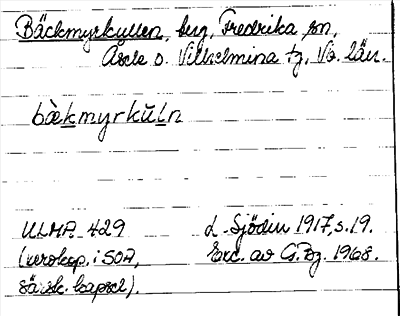 Bäckmyrkullen, berg, Fredrika sn,
Åsele o. Vilhelmina tg, Vb. län.
bàkmyrkŭLn
ULMA 429 L. Sjödin 1917, s. 19.
(xerokop. i SOA, Exc. av G. Bg. 1968.
särsk. kapsel).